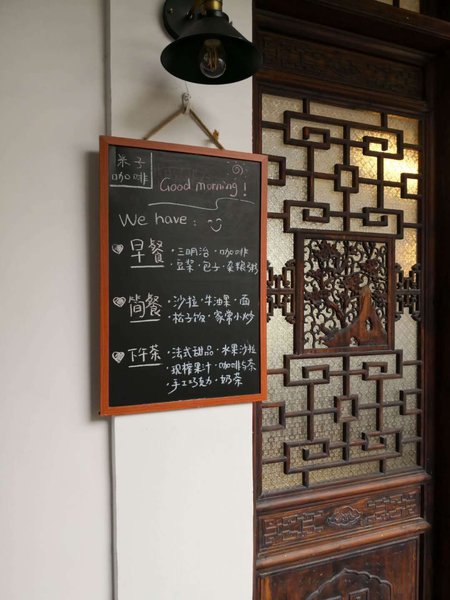 米子
咖啡
Good morning!
We have:
早餐
·三明治·咖啡
·豆浆·包子·杂粮粥
简餐
·沙拉·牛油果·面
·松子饭·家常小炒
下午茶
·法式甜品·水果沙拉
·现榨果汁·咖啡与茶
·手工巧克力·奶茶